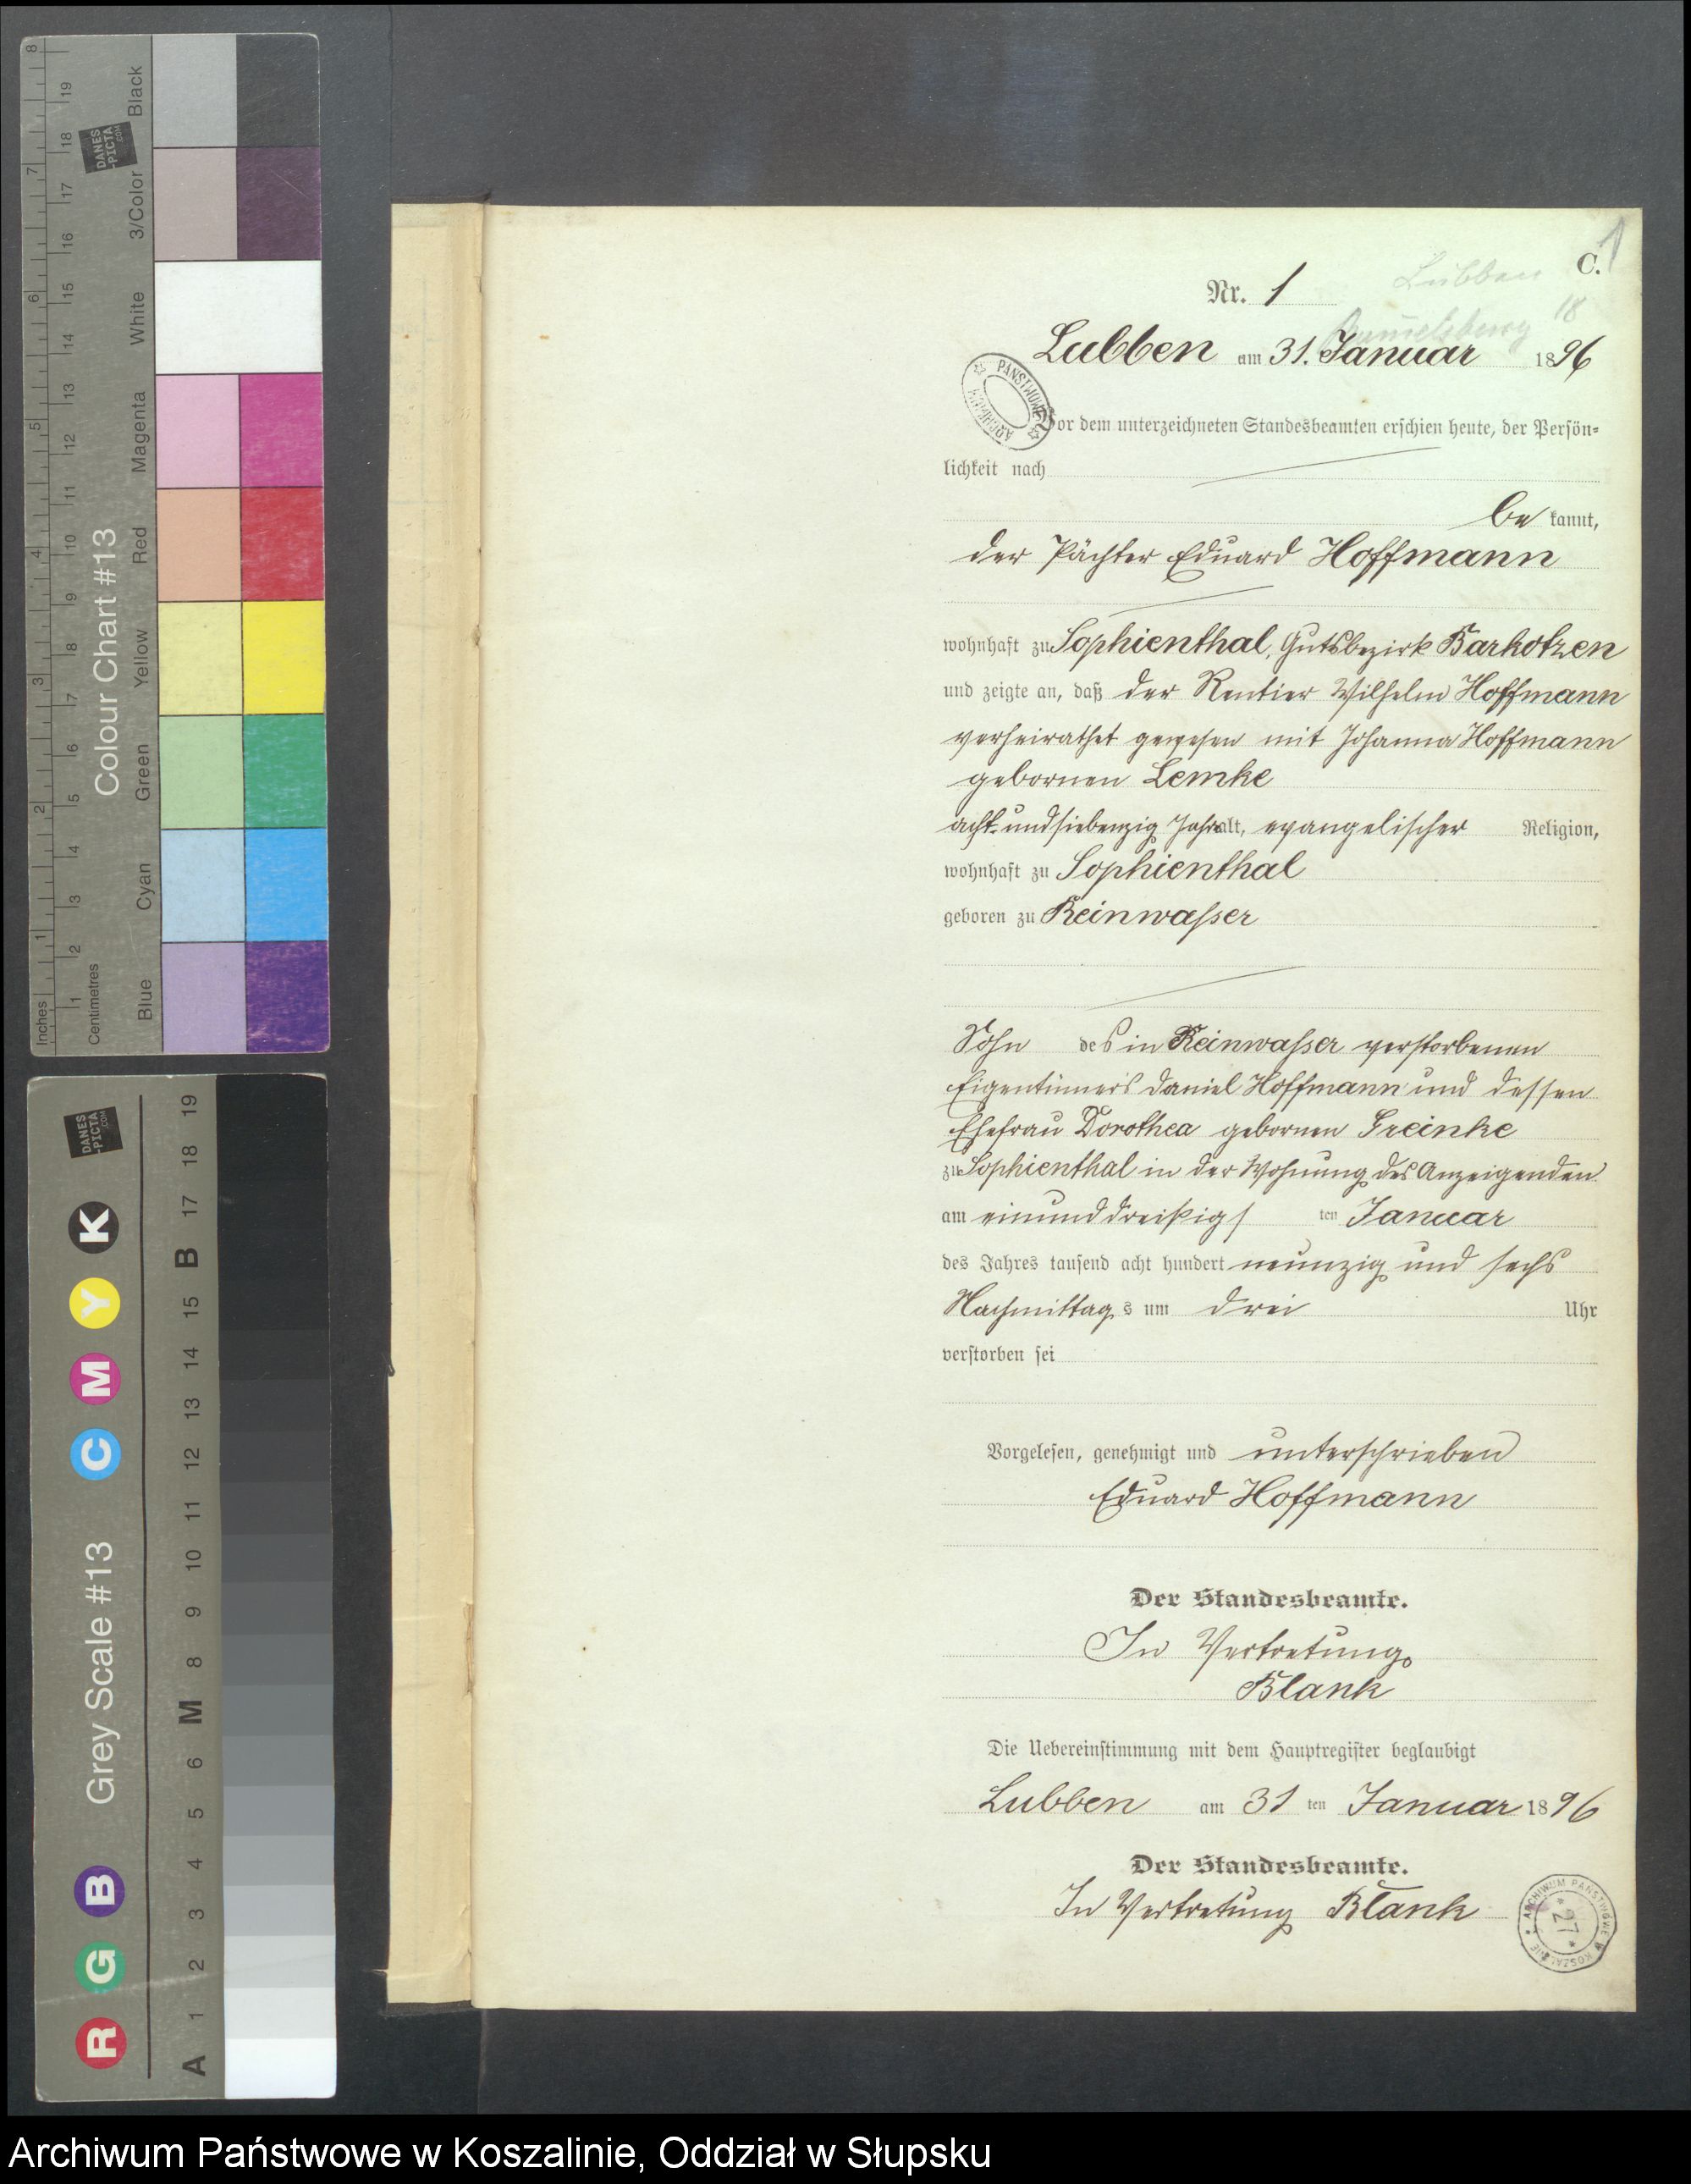 C. 1
Lübben
Nr. 1
18
Lubben am 31. Januar 1896
Vor dem unterzeichneten Standesbeamten erschien heute, der Persön-
lichkeit nach
be kannt,
der Pächter Eduard Hoffmann
wohnhaft zu Sophienthal, Gutsbezirk Barkotzen
und zeigte an, daß der Rentier Wilhelm Hoffmann
verheirathet gewesen mit Johanna Hoffmann
gebornen Lemke
acht und siebenzig Jahre alt, evangelischer Religion,
wohnhaft zu Sophienthal
geboren zu Reinwasser
Sohn des in Reinwasser verstorbenen
Eigentümers Daniel Hoffmann und dessen
Ehefrau Dorothea gebornen Greinke
zu Sophienthal in der Wohnung des Anzeigenden
am einunddreißigs ten Januar
des Jahres tausend acht hundert neunzig und sechs
Nachmittags um drei Uhr
verstorben sei
Vorgelesen, genehmigt und unterschrieben
Eduard Hoffmann
Der Standesbeamte.
In Vertretung
Blank
Die Uebereinstimmung mit dem Hauptregister beglaubigt
Lubben am 31 ten Januar 1896
Der Standesbeamte.
In Vertretung Blank
ARCHIWUM PAŃSTWOWE W KOSZALINIE
27
Colour Chart #13
Inches 1 2 3 4 5 6 7 8
Centimetres 1 2 3 4 5 6 7 8 9 10 11 12 13 14 15 16 17 18 19
Blue Cyan Green Yellow Red Magenta White 3/Color Black
DANES
-PICTA
.COM
Grey Scale #13
R G B C M Y K
A 1 2 3 4 5 6 M 8 9 10 11 12 13 14 15 B 17 18 19
DANES
-PICTA
.COM
Archiwum Państwowe w Koszalinie, Oddział w Słupsku